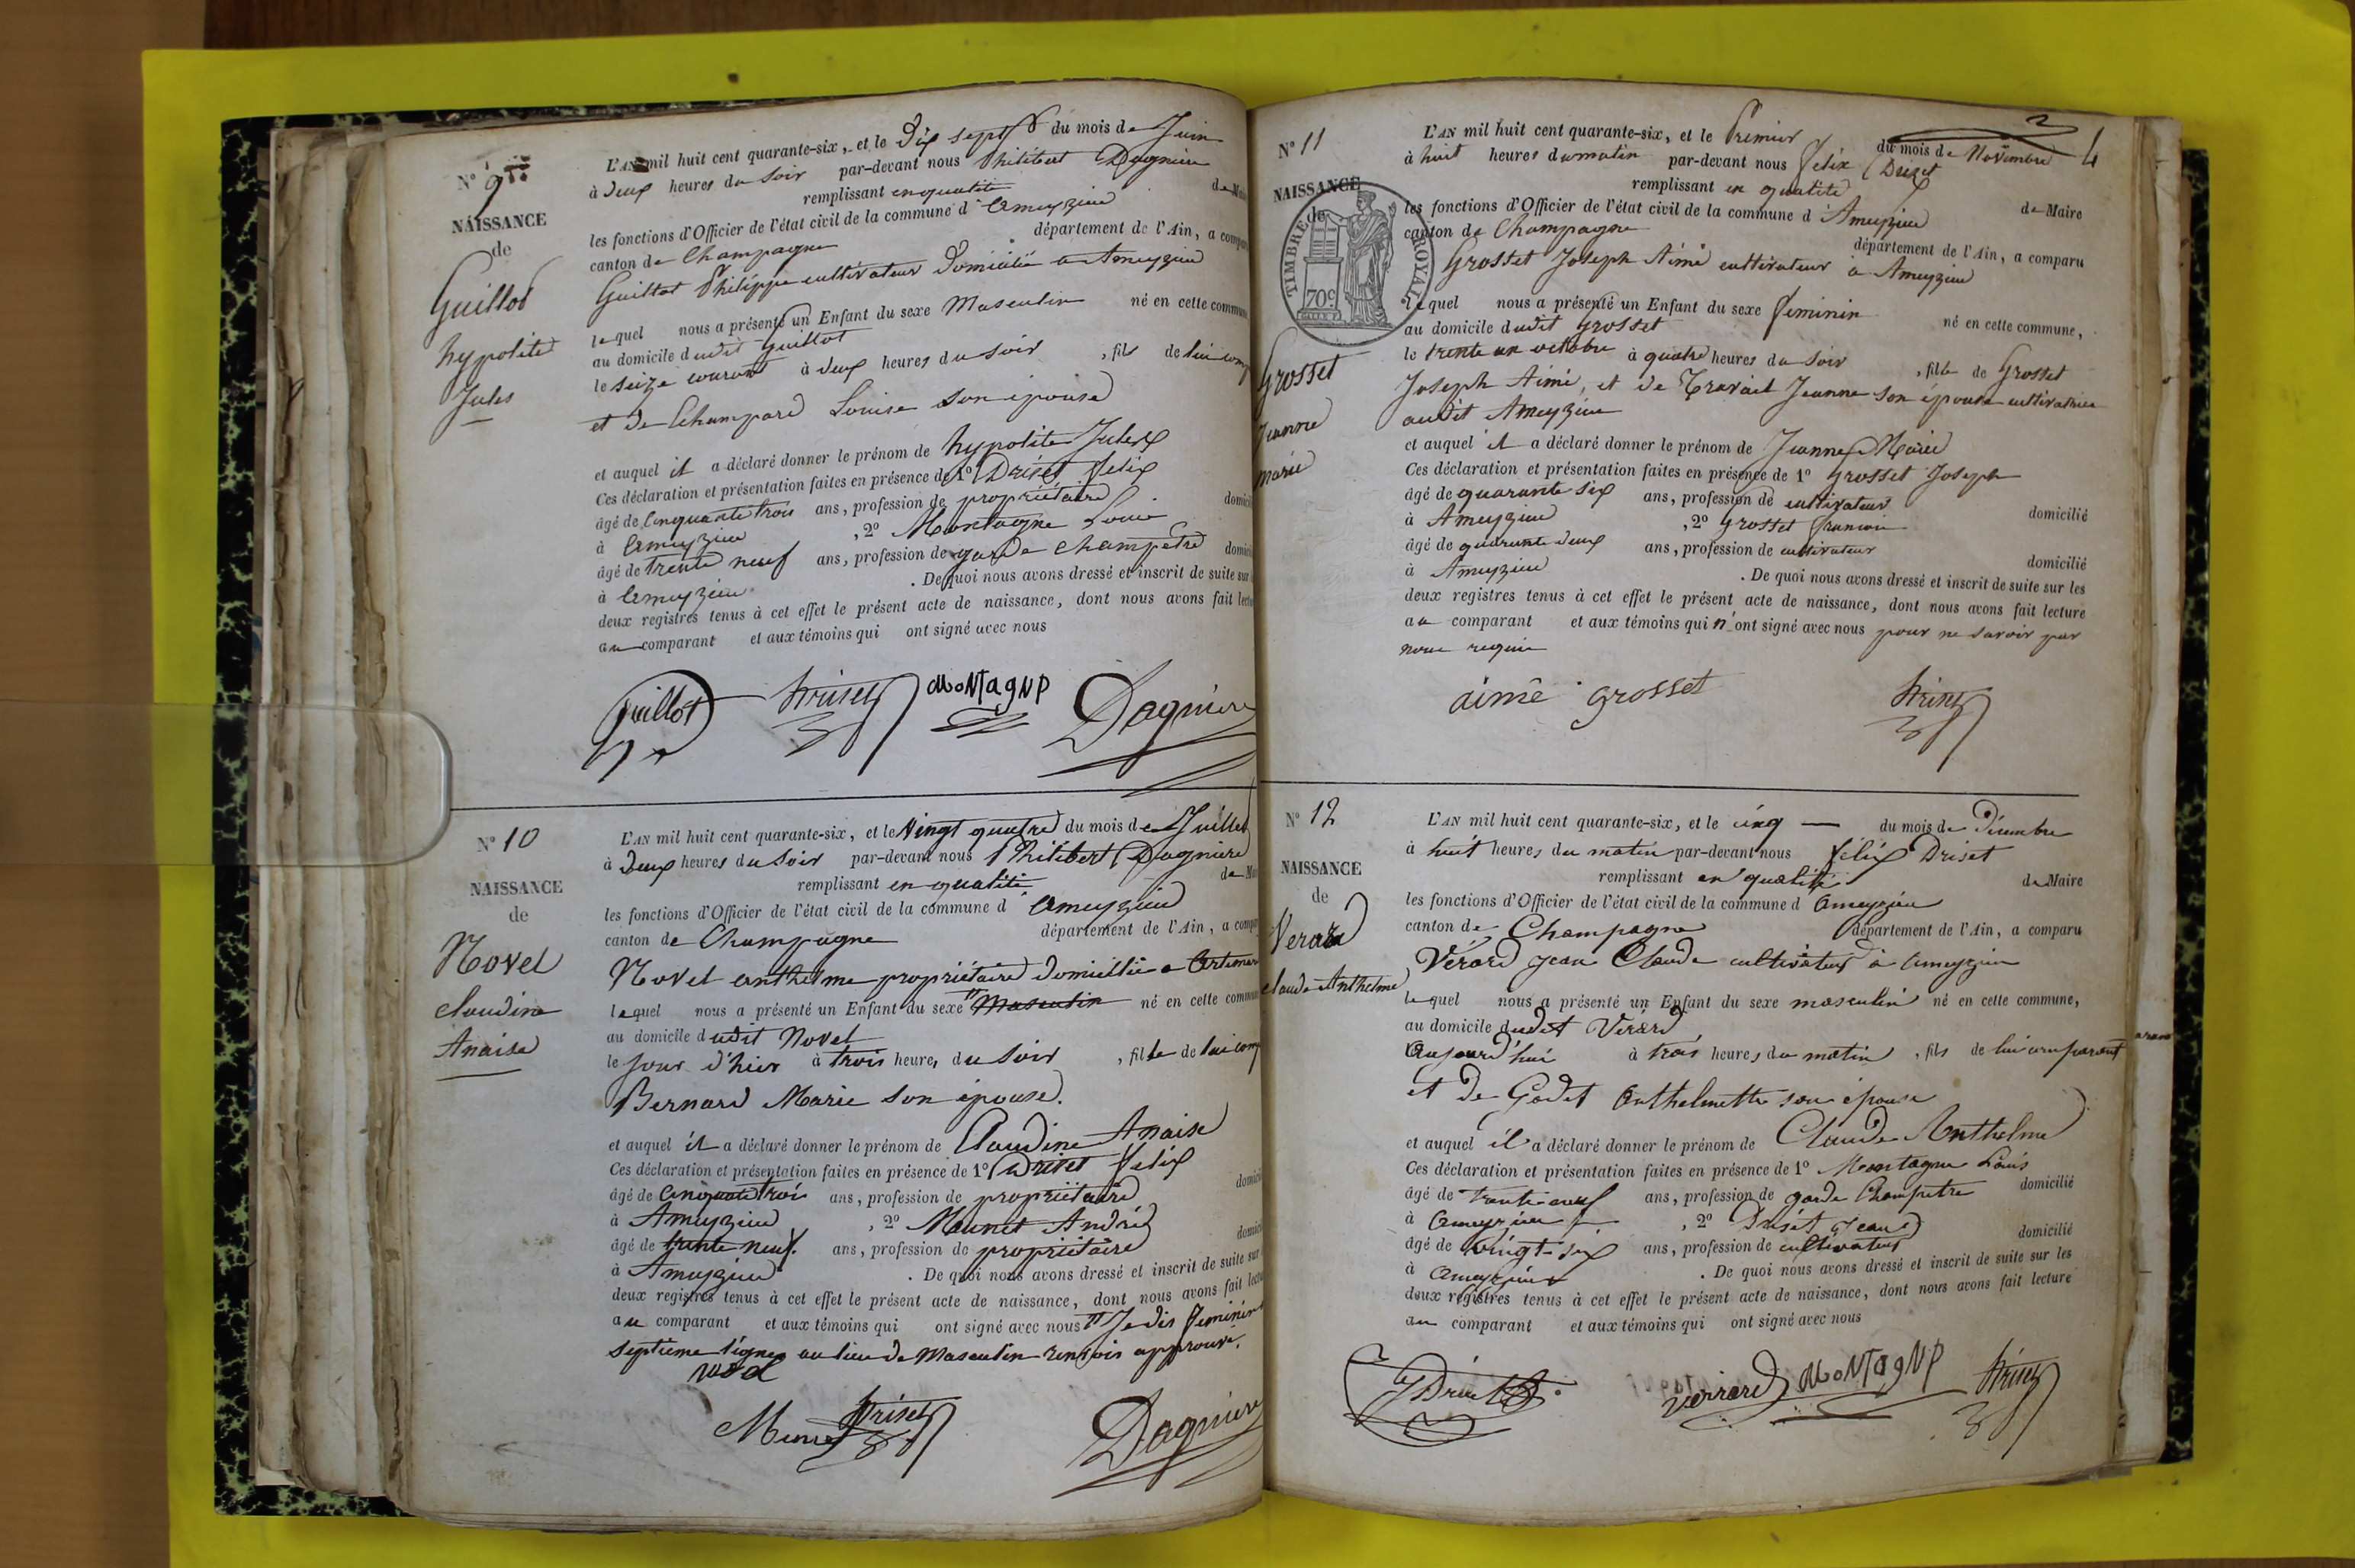 N° 9
NAISSANCE
de
Guillot
hypolite
Jules
L'AN mil huit cent quarante-six, et le Dix sept du mois de Juin
à Deux heures du Soir par-devant nous Philibert Dagnieu
remplissant en qualité de
les fonctions d'Officier de l'état civil de la commune d'Ameyzieu
canton de Champagne département de l'Ain, a
Guillot Philippe cultivateur Domicilié a Ameyzieu
lequel nous a présenté un Enfant du sexe Masculin né en cette
au domicile dudit Guillot
le seize courant à deux heures du Soir , fils de lui
et de Champard Louise son épouse
et auquel il a déclaré donner le prénom de hypolite Jules
Ces déclaration et présentation faites en présence de 1° Driset felix
âgé de Cinquante trois ans, profession de propriétaire
à Ameyzieu , 2° Montagne Louis
âgé de trente neuf ans, profession de garde champetre
à Ameyzieu . De quoi nous avons dressé et inscrit de suite sur
deux registres tenus à cet effet le présent acte de naissance, dont nous avons fait
au comparant et aux témoins qui ont signé avec nous
guillot Driset MoNTagNP Dagniere
N° 10
NAISSANCE
de
Novel
Claudine
Anaise
L'AN mil huit cent quarante-six, et le Vingt quatre du mois de Juillet
à Deux heures du Soir par-devant nous Philibert Dagniere
remplissant en qualité de
les fonctions d'Officier de l'état civil de la commune d Ameyzieu
canton de Champagne département de l'Ain, a
Novel anthelme propriétaire domicilié a
lequel nous a présenté un Enfant du sexe Masculin né en cette
au domicile dudit Novel
le Jour d'hier à trois heures du Soir , fille de lui
Bernard Marie son épouse.
et auquel il a déclaré donner le prénom de Claudine Anaise
Ces déclaration et présentation faites en présence de 1° Driset felix
âgé de Cinquante trois ans, profession de propriétaire
à Ameyzieu , 2° Meunet André
âgé de trente neuf. ans, profession de propriétaire
à Ameyzieu . De quoi nous avons dressé et inscrit de suite sur
deux registres tenus à cet effet le présent acte de naissance, dont nous avons fait
au comparant et aux témoins qui ont signé avec nous Je dis feminin
septieme ligne au lieu de Masculin renvoi approuvé.
Driset
Dagniere
4
N° 11
NAISSANCE
de
TIMBRE ROYAL
70c
Grosset
Jeanne
marie
L'AN mil huit cent quarante-six, et le Premier du mois de Novembre
à huit heures du matin par-devant nous felix Driset
remplissant en qualité de Maire
les fonctions d'Officier de l'état civil de la commune d Ameyzieu
canton de Champagne département de l'Ain, a comparu
Grosset Joseph Aimé cultivateur à Ameyzieu
lequel nous a présenté un Enfant du sexe feminin né en cette commune,
au domicile dudit grosset
le trente un octobre à quatre heures du Soir , fille de Grosset
Joseph Aimé, et de Travail Jeanne son épouse cultivatrice
audit Ameyzieu
et auquel il a déclaré donner le prénom de Jeanne Marie
Ces déclaration et présentation faites en présence de 1° grosset Joseph
âgé de quarante six ans, profession de cultivateur domicilié
à Ameyzieu , 2° grosset francois
âgé de quarante deux ans, profession de cultivateur domicilié
à Ameyzieu . De quoi nous avons dressé et inscrit de suite sur les
deux registres tenus à cet effet le présent acte de naissance, dont nous avons fait lecture
au comparant et aux témoins qui n'ont signé avec nous pour ne savoir par
nous requis
aimé grosset Driset
N° 12
NAISSANCE
de
Verard
Claude Anthelme
L'AN mil huit cent quarante-six, et le cinq du mois de Décembre
à huit heures du matin par-devant nous félix Driset
remplissant en qualité de Maire
les fonctions d'Officier de l'état civil de la commune d Ameyzieu
canton de Champagne département de l'Ain, a comparu
Vérard Jean Claude cultivateur à Ameyzieu
lequel nous a présenté un Enfant du sexe masculin né en cette commune,
au domicile dudit Vérard
Aujourd'hui à trois heures du matin , fils de lui comparant
et de Godet Anthelmette son épouse
et auquel il a déclaré donner le prénom de Claude Anthelme
Ces déclaration et présentation faites en présence de 1° Montagne Louis
âgé de trente-neuf ans, profession de garde Champetre domicilié
à Ameyzieu , 2° Driset Jean
âgé de vingt-six ans, profession de cultivateur domicilié
à Ameyzieu . De quoi nous avons dressé et inscrit de suite sur les
deux registres tenus à cet effet le présent acte de naissance, dont nous avons fait lecture
au comparant et aux témoins qui ont signé avec nous
verrard MoNTagNP Driset